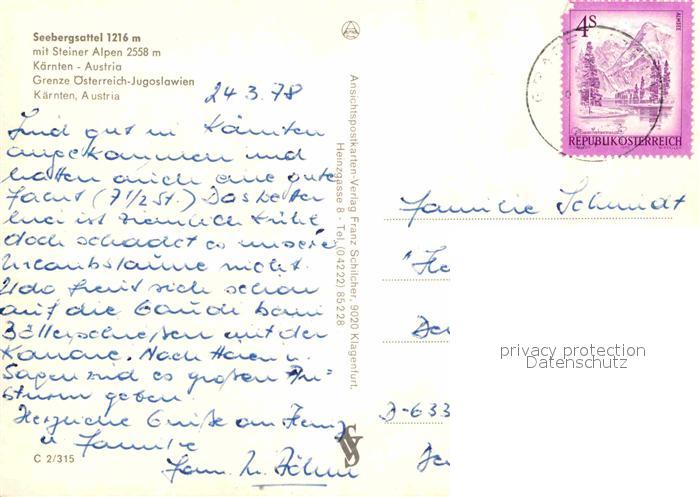 Seebergsattel 1216 m
mit Steiner Alpen 2558 m
Kärnten - Austria
Grenze Österreich-Jugoslawien
Kärnten, Austria
24.3.78
Sind gut in Kärnten
angekommen und
hatten auch eine gute
Fahrt (7 1/2 St.) Das Wetter
hier ist ziemlich kühl
doch schadet es unserer
Urlaubslaune nicht.
Udo freut sich schon
auf die Gaudi beim
Böllerschießen mit der
Kanone. Nach Hören u.
Sagen wird es großen An-
sturm geben.
Herzliche Grüße an Heinz
u Familie
Fam. Böhm
C 2/315
Ansichtspostkarten-Verlag Franz Schilcher, 9020 Klagenfurt.
Heinzgasse 8 - Tel. (04222) 85228
4S
ALMSEE
REPUBLIK ÖSTERREICH
Familie Schmidt
D-633
privacy protection
Datenschutz